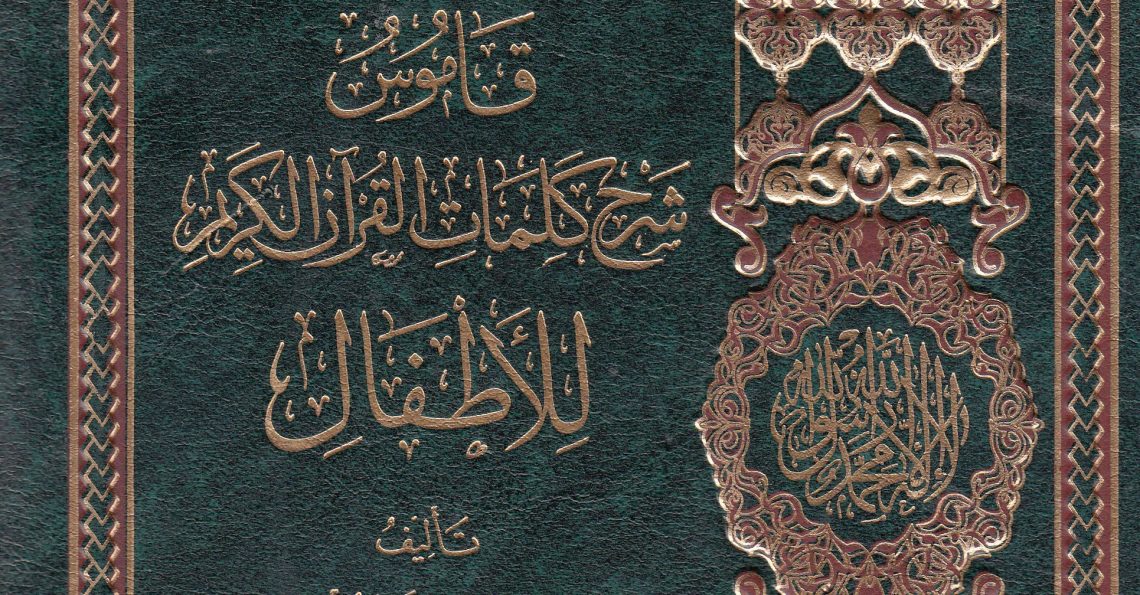 قَامُوسُ
شَرْحِ كَلِمَاتِ القُرْآنِ الكَرِيمِ
لِلْأَطْفَالِ
لا إله إلا الله محمد رسول الله
تَأْلِيفُ